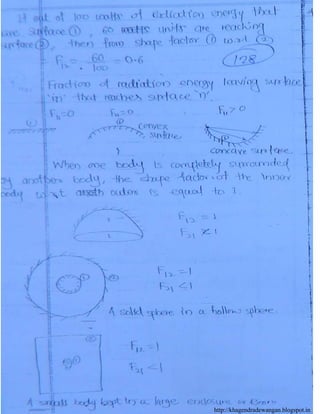 If out of 100 watts of radiation energy that
are surface ①, 60 watts units are reaching
surface ②, then from shape factor ① w.r.t ②
F₁₂ = 60/100 = 0.6
128
Fraction of radiation energy leaving surface
'm' that reaches surface 'n'.
F₁₁=0 F₁₁=0 F₁₁>0
convex
surface
concave surface.
When one body is completely surrounded
by another body, the shape factor of the inner
body w.r.t outer is equal to 1.
F₁₂ = 1
F₂₁ < 1
F₁₂ = 1
F₂₁ < 1
A solid sphere in a hollow sphere.
F₁₂ = 1
F₂₁ < 1
A small body kept in a large enclosure or Room
http://khagendradewangan.blogspot.in